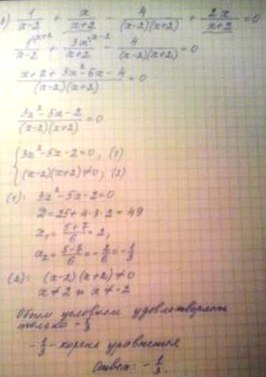 1/(x-2) + x/(x+2) - 4/((x-2)(x+2)) + 2x/(x+2) = 0
1^(x+2)/(x-2) + 3x^(x-2)/(x+2) - 4/((x-2)(x+2)) = 0
(x+2+3x²-6x-4)/((x-2)(x+2)) = 0
(3x²-5x-2)/((x-2)(x+2)) = 0
{ 3x²-5x-2=0, (1)
(x-2)(x+2)≠0, (2)
(1): 3x²-5x-2=0
D=25+4·3·2=49
x₁=(5+7)/6=2,
x₂=(5-7)/6=-2/6=-1/3
(2): (x-2)(x+2)≠0
x≠2 и x≠-2
Обоим условиям удовлетворяет
только -1/3
-1/3 - корень уравнения
Ответ: -1/3.